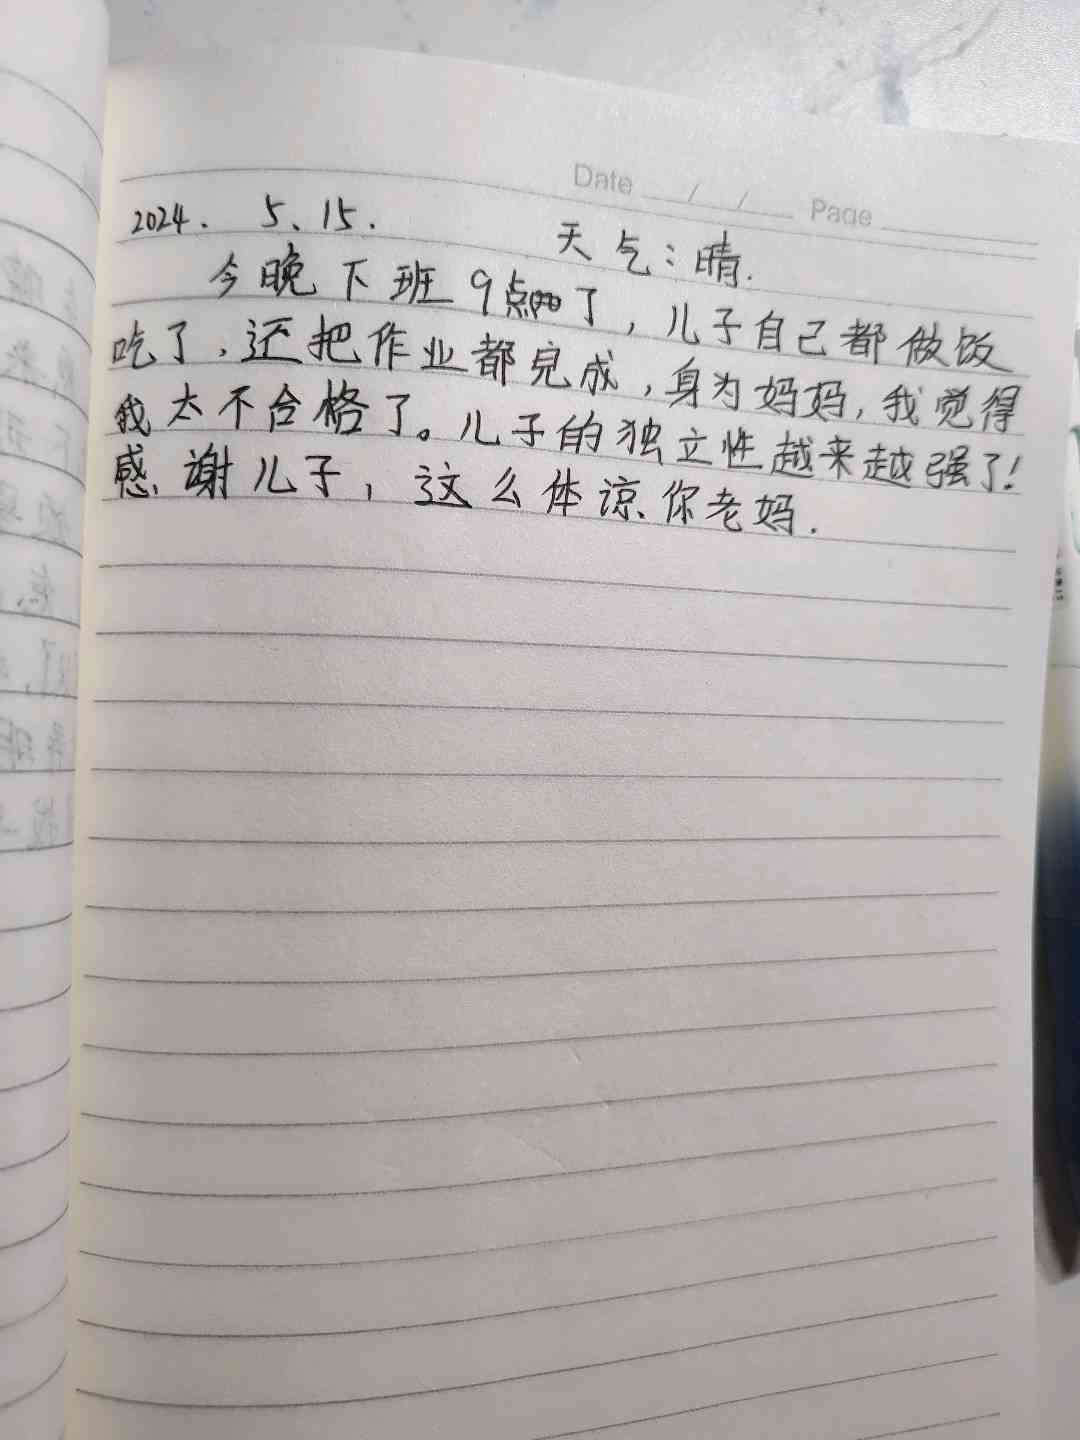 Date / / Page
2024. 5、15.
天气：晴.
今晚下班9点了，儿子自己都做饭
吃了，还把作业都完成，身为妈妈，我觉得
我太不合格了。儿子的独立性越来越强了！
感谢儿子，这么体谅你老妈.